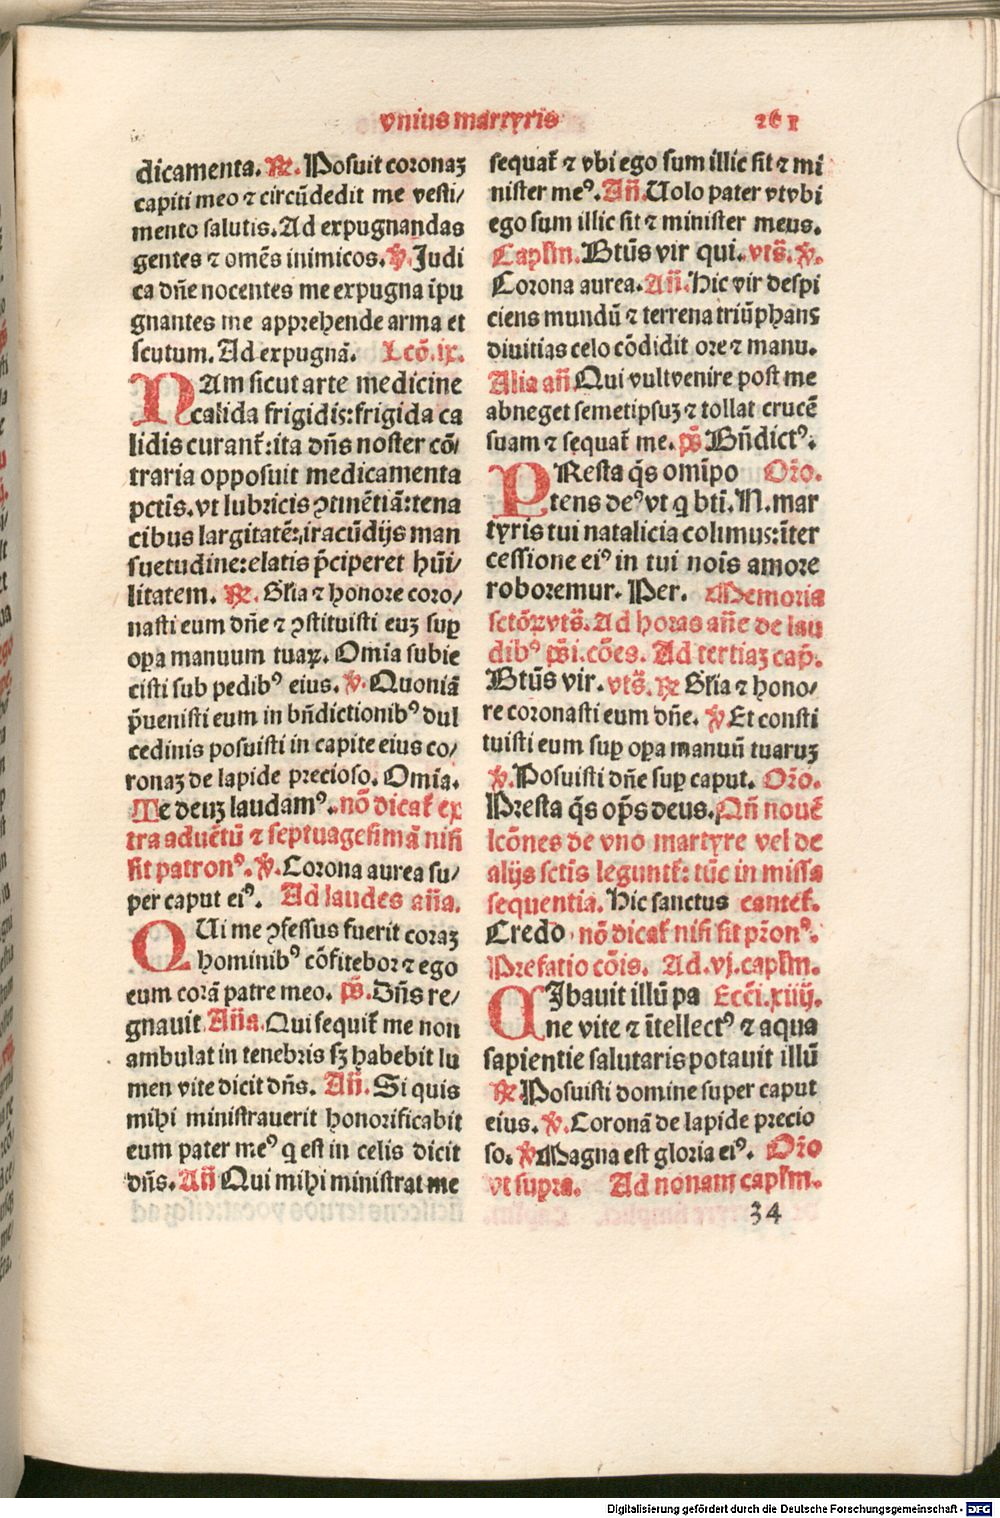 vnius martyris 261
dicamenta. ℟. Posuit coronaꝫ
capiti meo ⁊ circūdedit me vesti/
mento salutis. Ad expugnandas
gentes ⁊ omēs inimicos. ℣. Judi
ca dn̄e nocentes me expugna īpu
gnantes me apprehende arma et
scutum. Ad expugnā. Lcō. ix.
NAm sicut arte medicine
calida frigidis: frigida ca
lidis curant᷑: ita dn̄s noster cō/
traria opposuit medicamenta
pctīs. vt lubricis ꝯtinētiā: tena
cibus largitatē: iracūdijs man
suetudine: elatis p̄ciperet hūi/
litatem. ℟. Gl̄ia ⁊ honore coro/
nasti eum dn̄e ⁊ ꝯstituisti euꝫ sup̄
oꝑa manuum tuaꝝ. Om̄ia subie
cisti sub pedibꝰ eius. ℣. Quoniā
p̄uenisti eum in bn̄dictionibꝰ dul
cedinis posuisti in capite eius co/
ronaꝫ de lapide precioso. Om̄ia.
Te deuꝫ laudamꝰ. nō dicat᷑ ex
tra aduētū ⁊ septuagesimā nisi
sit patronꝰ. ℣. Corona aurea su/
per caput eiꝰ. Ad laudes an̄a.
QUi me ꝯfessus fuerit coraꝫ
hominibꝰ cōfitebor ⁊ ego
eum corā patre meo. ps̄. Dn̄s re/
gnauit. An̄a. Qui sequit᷑ me non
ambulat in tenebris sꝫ habebit lu
men vite dicit dn̄s. An̄. Si quis
mihi ministrauerit honorificabit
eum pater meꝰ q est in celis dicit
dn̄s. An̄ Qui mihi ministrat me
sequat᷑ ⁊ vbi ego sum illic sit ⁊ mi
nister meꝰ. An̄. Uolo pater vt vbi
ego sum illic sit ⁊ minister meus.
Capl̄m. Btūs vir qui. vts̄. ℣.
Corona aurea. An̄. Hic vir despi
ciens mundū ⁊ terrena triūphans
diuitias celo cōdidit ore ⁊ manu.
Alia an̄ Qui vult venire post me
abneget semetipsuꝫ ⁊ tollat crucē
suam ⁊ sequat᷑ me. ps̄ Bn̄dictꝰ.
PResta q̄s omīpo Or̄o.
tens deꝰ vt q bti̅. N. mar
tyris tui natalicia colimus: īter
cessione eiꝰ in tui nois̄ amore
roboremur. Per. Memoria
sctōꝝ vts̄. Ad horas an̄e de lau
dibꝰ ps̄i. cōes. Ad tertiaꝫ cap̄.
Btūs vir. vts̄. ℟ Gl̄ia ⁊ hono/
re coronasti eum dn̄e. ℣ Et consti
tuisti eum suꝑ oꝑa manuū tuaruꝫ
℣. Posuisti dn̄e suꝑ caput. Or̄o.
Presta q̄s op̄s deus. Qn̄ nouē
lcōnes de vno martyre vel de
alijs sctīs legunt᷑: tūc in missa
sequentia. Hic sanctus cantet᷑.
Credo nō dicat᷑ nisi sit pr̄onꝰ.
Prefatio cōis. Ad. vj. capl̄m.
CIbauit illū pa Ecc̄i. xiiij.
ne vite ⁊ ītellectꝰ ⁊ aqua
sapientie salutaris potauit illū
℟ Posuisti domine super caput
eius. ℣. Coronā de lapide precio
so. ℣ Magna est gloria eiꝰ. Or̄o
vt supra. Ad nonam capl̄m.
34
Digitalisierung gefördert durch die Deutsche Forschungsgemeinschaft - DFG